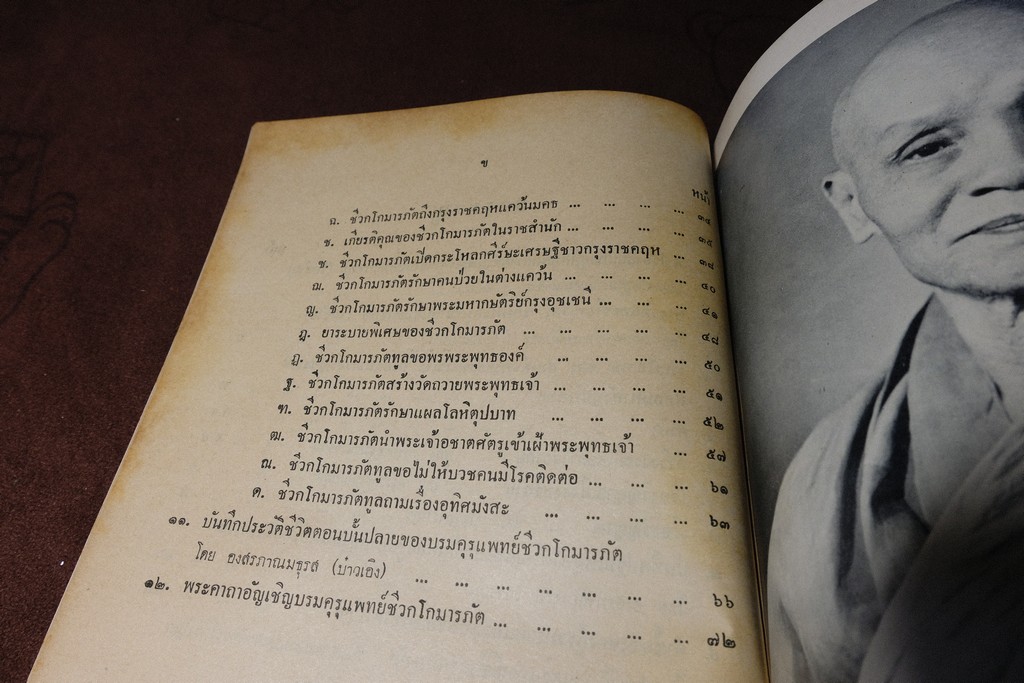 ข
หน้า
ฉ. ชีวกโกมารภัตถึงกรุงราชคฤหแคว้นมคธ ... ... ... ... ๓๔
ช. เกียรติคุณของชีวกโกมารภัตในราชสำนัก ... ... ... ... ๓๕
ซ. ชีวกโกมารภัตเปิดกระโหลกศีร์ษะเศรษฐีชาวกรุงราชคฤห ... ๓๘
ฌ. ชีวกโกมารภัตรักษาคนป่วยในต่างแคว้น ... ... ... ... ๔๐
ญ. ชีวกโกมารภัตรักษาพระมหากษัตริย์กรุงอุชเชนี ... ... ... ๔๑
ฎ. ยาระบายพิเศษของชีวกโกมารภัต ... ... ... ... ... ๔๘
ฏ. ชีวกโกมารภัตทูลขอพรพระพุทธองค์ ... ... ... ... ๕๐
ฐ. ชีวกโกมารภัตสร้างวัดถวายพระพุทธเจ้า ... ... ... ... ๕๑
ฑ. ชีวกโกมารภัตรักษาแผลโลหิตุปบาท ... ... ... ... ๕๒
ฒ. ชีวกโกมารภัตนำพระเจ้าอชาตศัตรูเข้าเฝ้าพระพุทธเจ้า ... ๕๗
ณ. ชีวกโกมารภัตทูลขอไม่ให้บวชคนมีโรคติดต่อ ... ... ... ๖๑
ด. ชีวกโกมารภัตทูลถามเรื่องอุทิศมังสะ ... ... ... ... ๖๓
๑๑. บันทึกประวัติชีวิตตอนบั้นปลายของบรมคุรุแพทย์ชีวกโกมารภัต
โดย องสรภาณมธุรส (บ๋าวเอิง) ... ... ... ... ... ... ... ๖๖
๑๒. พระคาถาอัญเชิญบรมคุรุแพทย์ชีวกโกมารภัต ... ... ... ... ... ๗๒